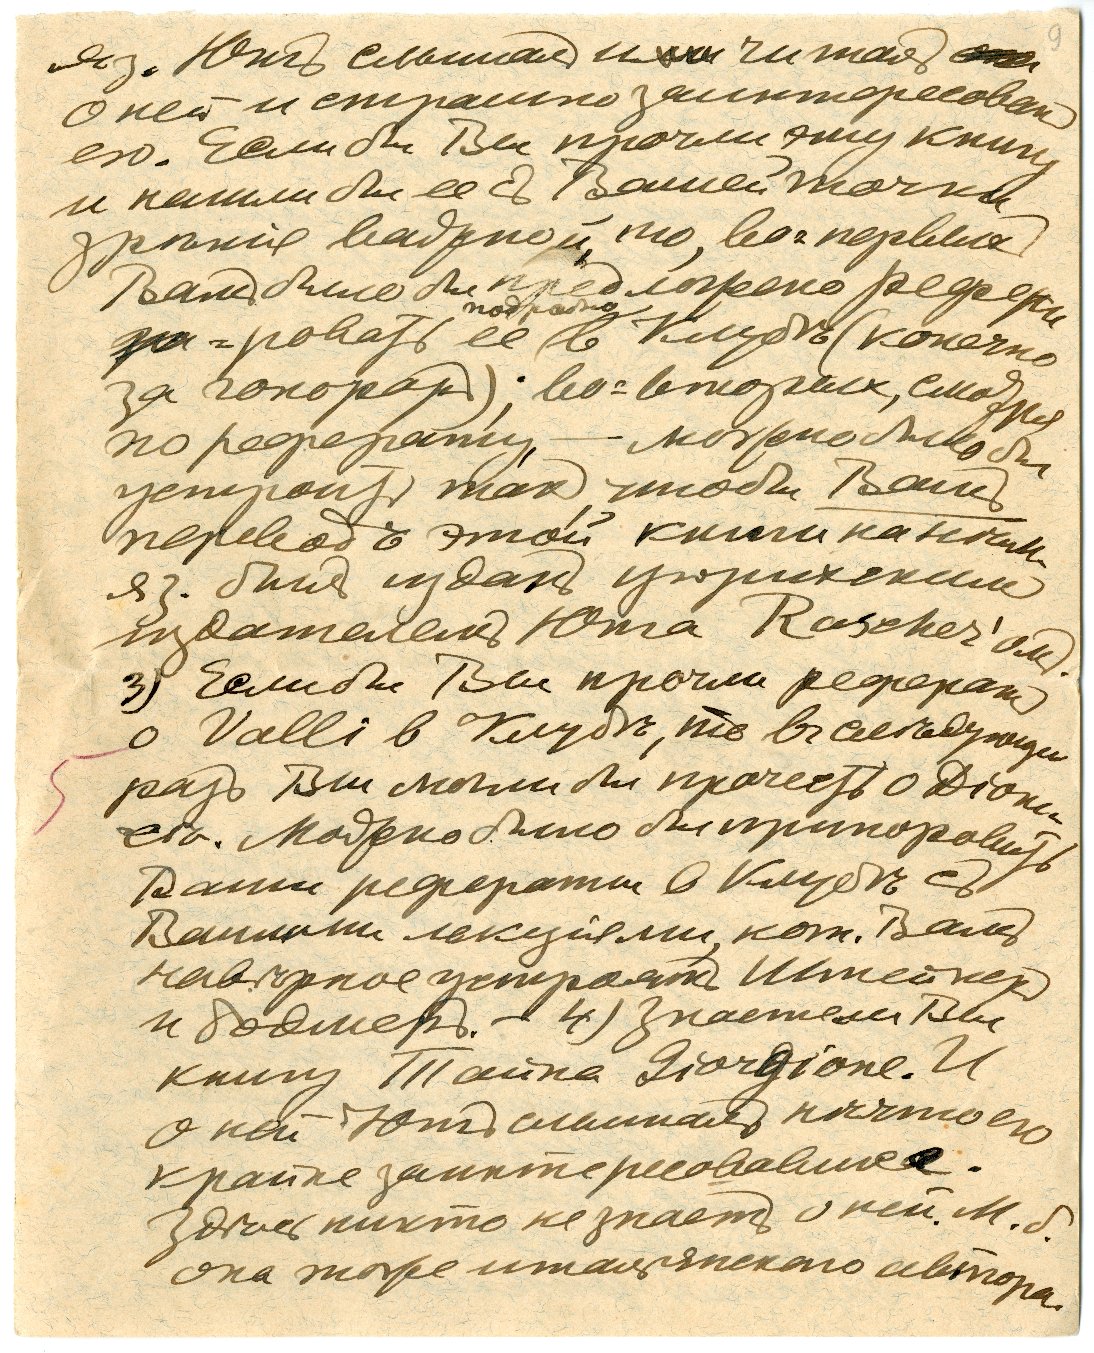 9
яз. Юнгъ слышалъ и читалъ
о ней и страшно заинтересованъ
ею. Если бы Вы прочли эту книгу
и нашли бы ее съ Вашей точки
зрѣнія важной, то, во=первыхъ
Вамъ было бы предложено рефери
подробно
=ровать ее въ Клубѣ (конечно
за гонораръ); во=вторыхъ, смотря
по реферату, — можно было бы
устроить такъ чтобы Вашъ
переводъ этой книги на нѣм.
яз. былъ изданъ цюрихскимъ
издателемъ Юнга Rascher'омъ.
3) Если бы Вы прочли рефератъ
о Valli в Клубѣ, то въ слѣдующій
разъ Вы могли бы прочесть о Діони-
сѣ. Можно было бы приноровить
Ваши рефераты в Клубѣ съ
Вашими лекціями, кот. Вамъ
навѣрное устроятъ Штейнеръ
и Бодмеръ. — 4) Знаете ли Вы
книгу Тайна Giorgione. И
о ней Юнгъ слышалъ нѣчто его
крайне заинтересовавшее.
Здѣсь никто не знаетъ о ней. М. б.
она тоже итальянскаго автора.